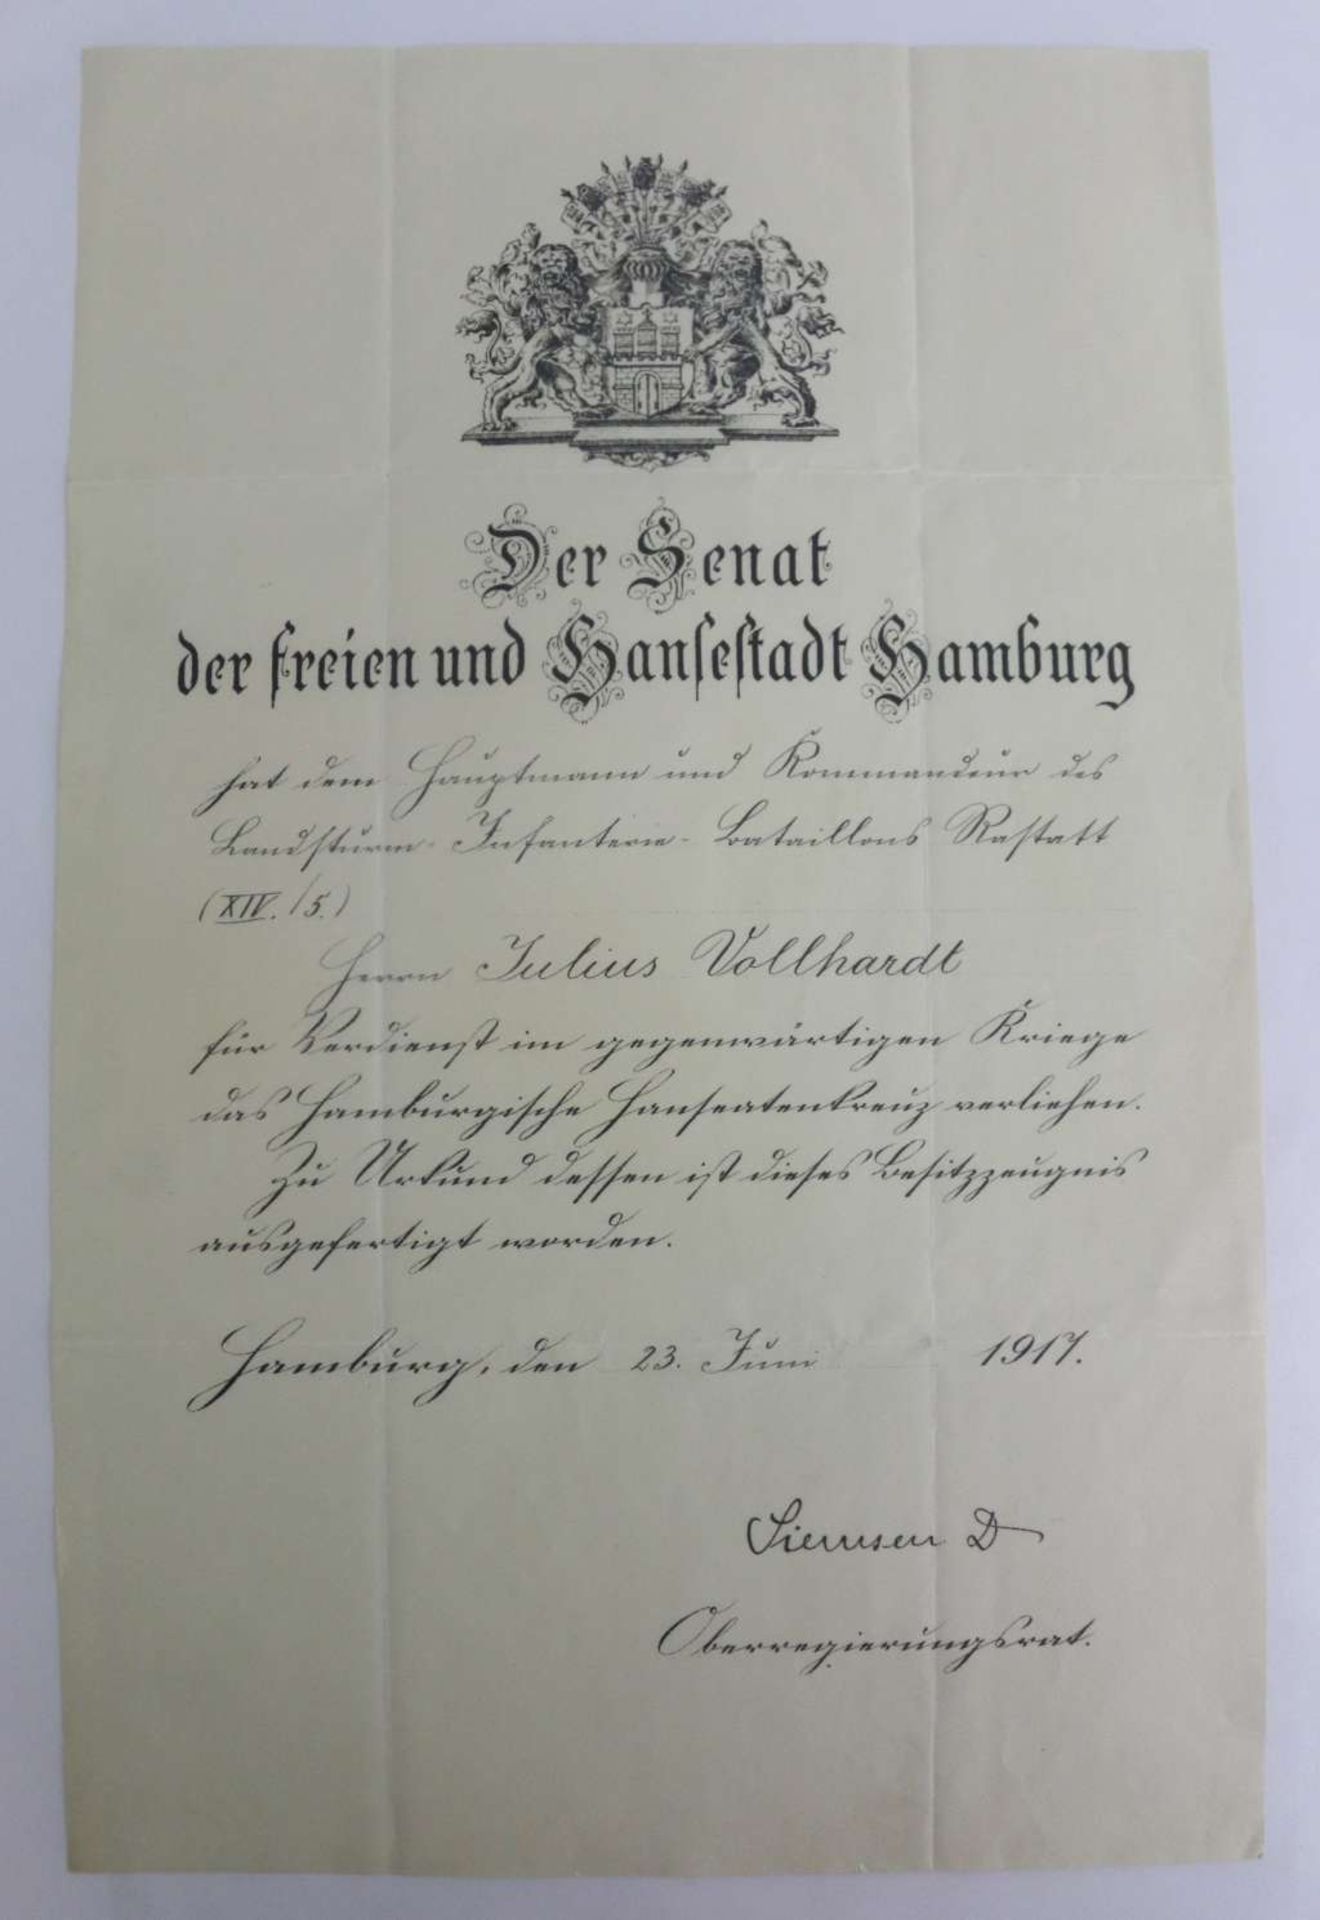 Der Senat
der freien und Hansestadt Hamburg
hat dem Hauptmann und Kommandeur des
Landsturm-Infanterie-Bataillons Rastatt
(XIV./5.)
Herrn Julius Vollhardt
für Verdienst im gegenwärtigen Kriege
das Hamburgische Hanseatenkreuz verliehen.
Zu Urkund dessen ist dieses Besitzzeugnis
ausgefertigt worden.
Hamburg, den 23. Juni 1917.
Siemsen D
Oberregierungsrat.